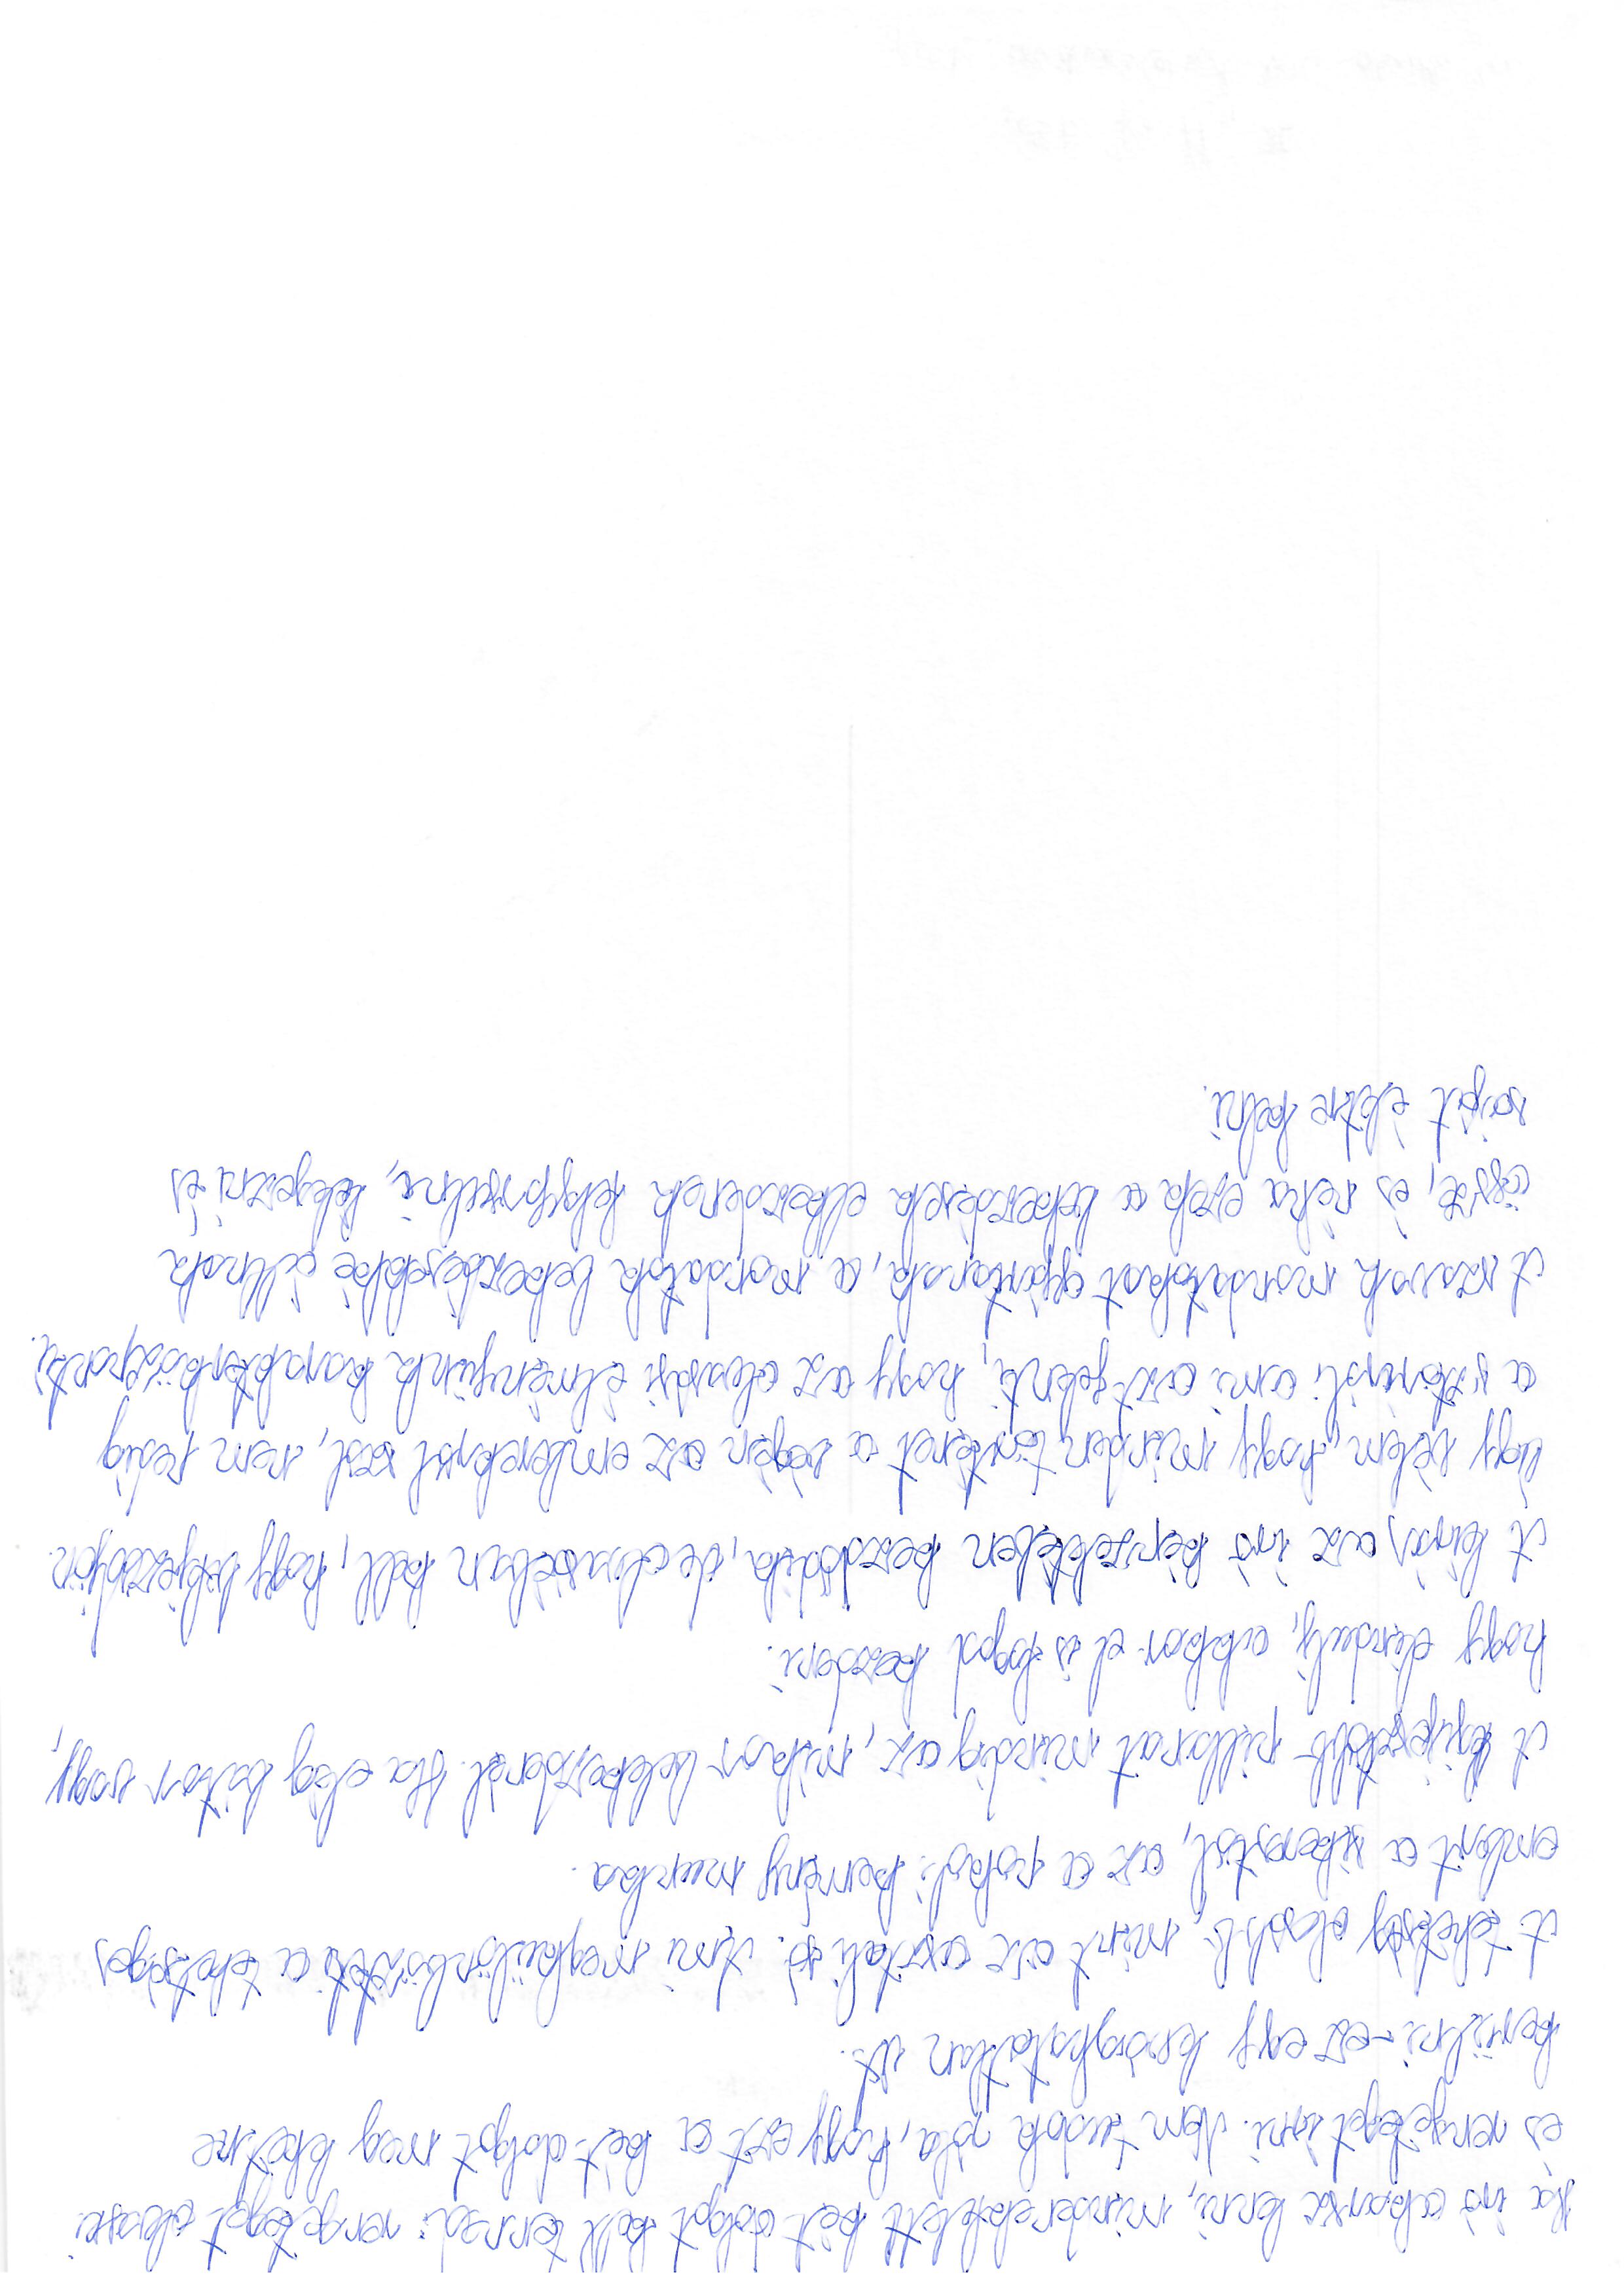 Ha író akarsz lenni, mindenekfelett két dolgot kell tenned: rengeteget olvasni
és rengeteget írni. Nem tudok róla, hogy ezt a két dolgot meg lehetne
kerülni – ez egy levághatatlan út.
A tehetség olcsóbb, mint az asztali só. Ami megkülönbözteti a tehetséges
embert a sikerestől, az a pokoli kemény munka.
A legijesztőbb pillanat mindig az, mikor belekezdenél. Ha elég bátor vagy,
hogy elindulj, akkor el is fogod kezdeni.
A leírás az író képzeletében kezdődik, de olvasóéban kell, hogy befejeződjön.
Úgy vélem, hogy minden történet a végén az emberekről szól, nem pedig
a sztoriról; ami azt jelenti, hogy az olvasási élményünk karakterközpontú.
A szavak mondatokat gyártanak, a mondatok bekezdésekké állnak
össze, és néha ezek a bekezdések elkezdenek felgyorsulni, lélegezni és
saját életre kelni.